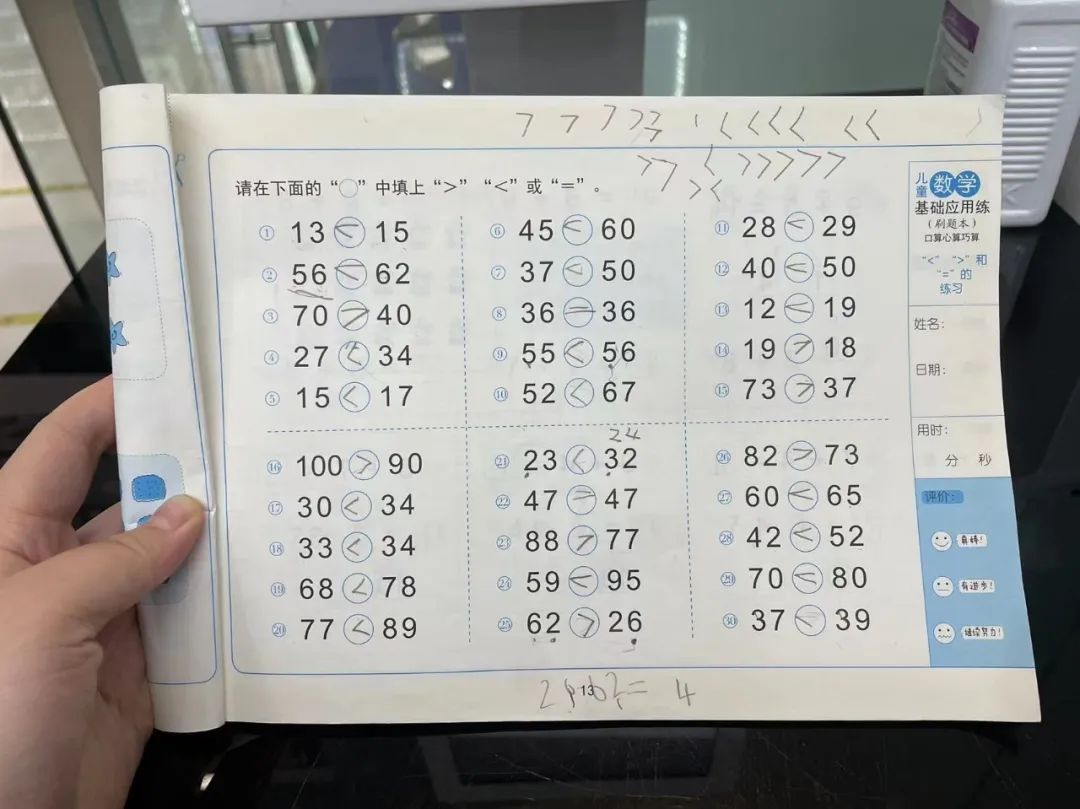 > > > > > < < < < < <
> > < > > > > >
> <
请在下面的“○”中填上“>”“<”或“=”。
① 13 < 15
② 56 < 62
③ 70 > 40
④ 27 < 34
⑤ 15 < 17
⑥ 45 < 60
⑦ 37 < 50
⑧ 36 = 36
⑨ 55 < 56
⑩ 52 < 67
⑪ 28 < 29
⑫ 40 < 50
⑬ 12 < 19
⑭ 19 > 18
⑮ 73 > 37
⑯ 100 > 90
⑰ 30 < 34
⑱ 33 < 34
⑲ 68 < 78
⑳ 77 < 89
24
㉑ 23 < 32
㉒ 47 = 47
㉓ 88 > 77
㉔ 59 < 95
㉕ 62 > 26
㉖ 82 > 73
㉗ 60 < 65
㉘ 42 < 52
㉙ 70 < 80
㉚ 37 < 39
儿童数学
基础应用练
(刷题本)
口算心算巧算
“<”“>”和
“=”的
练习
姓名:
日期:
用时:
分 秒
评价:
真棒!
有进步!
继续努力!
13
= 4